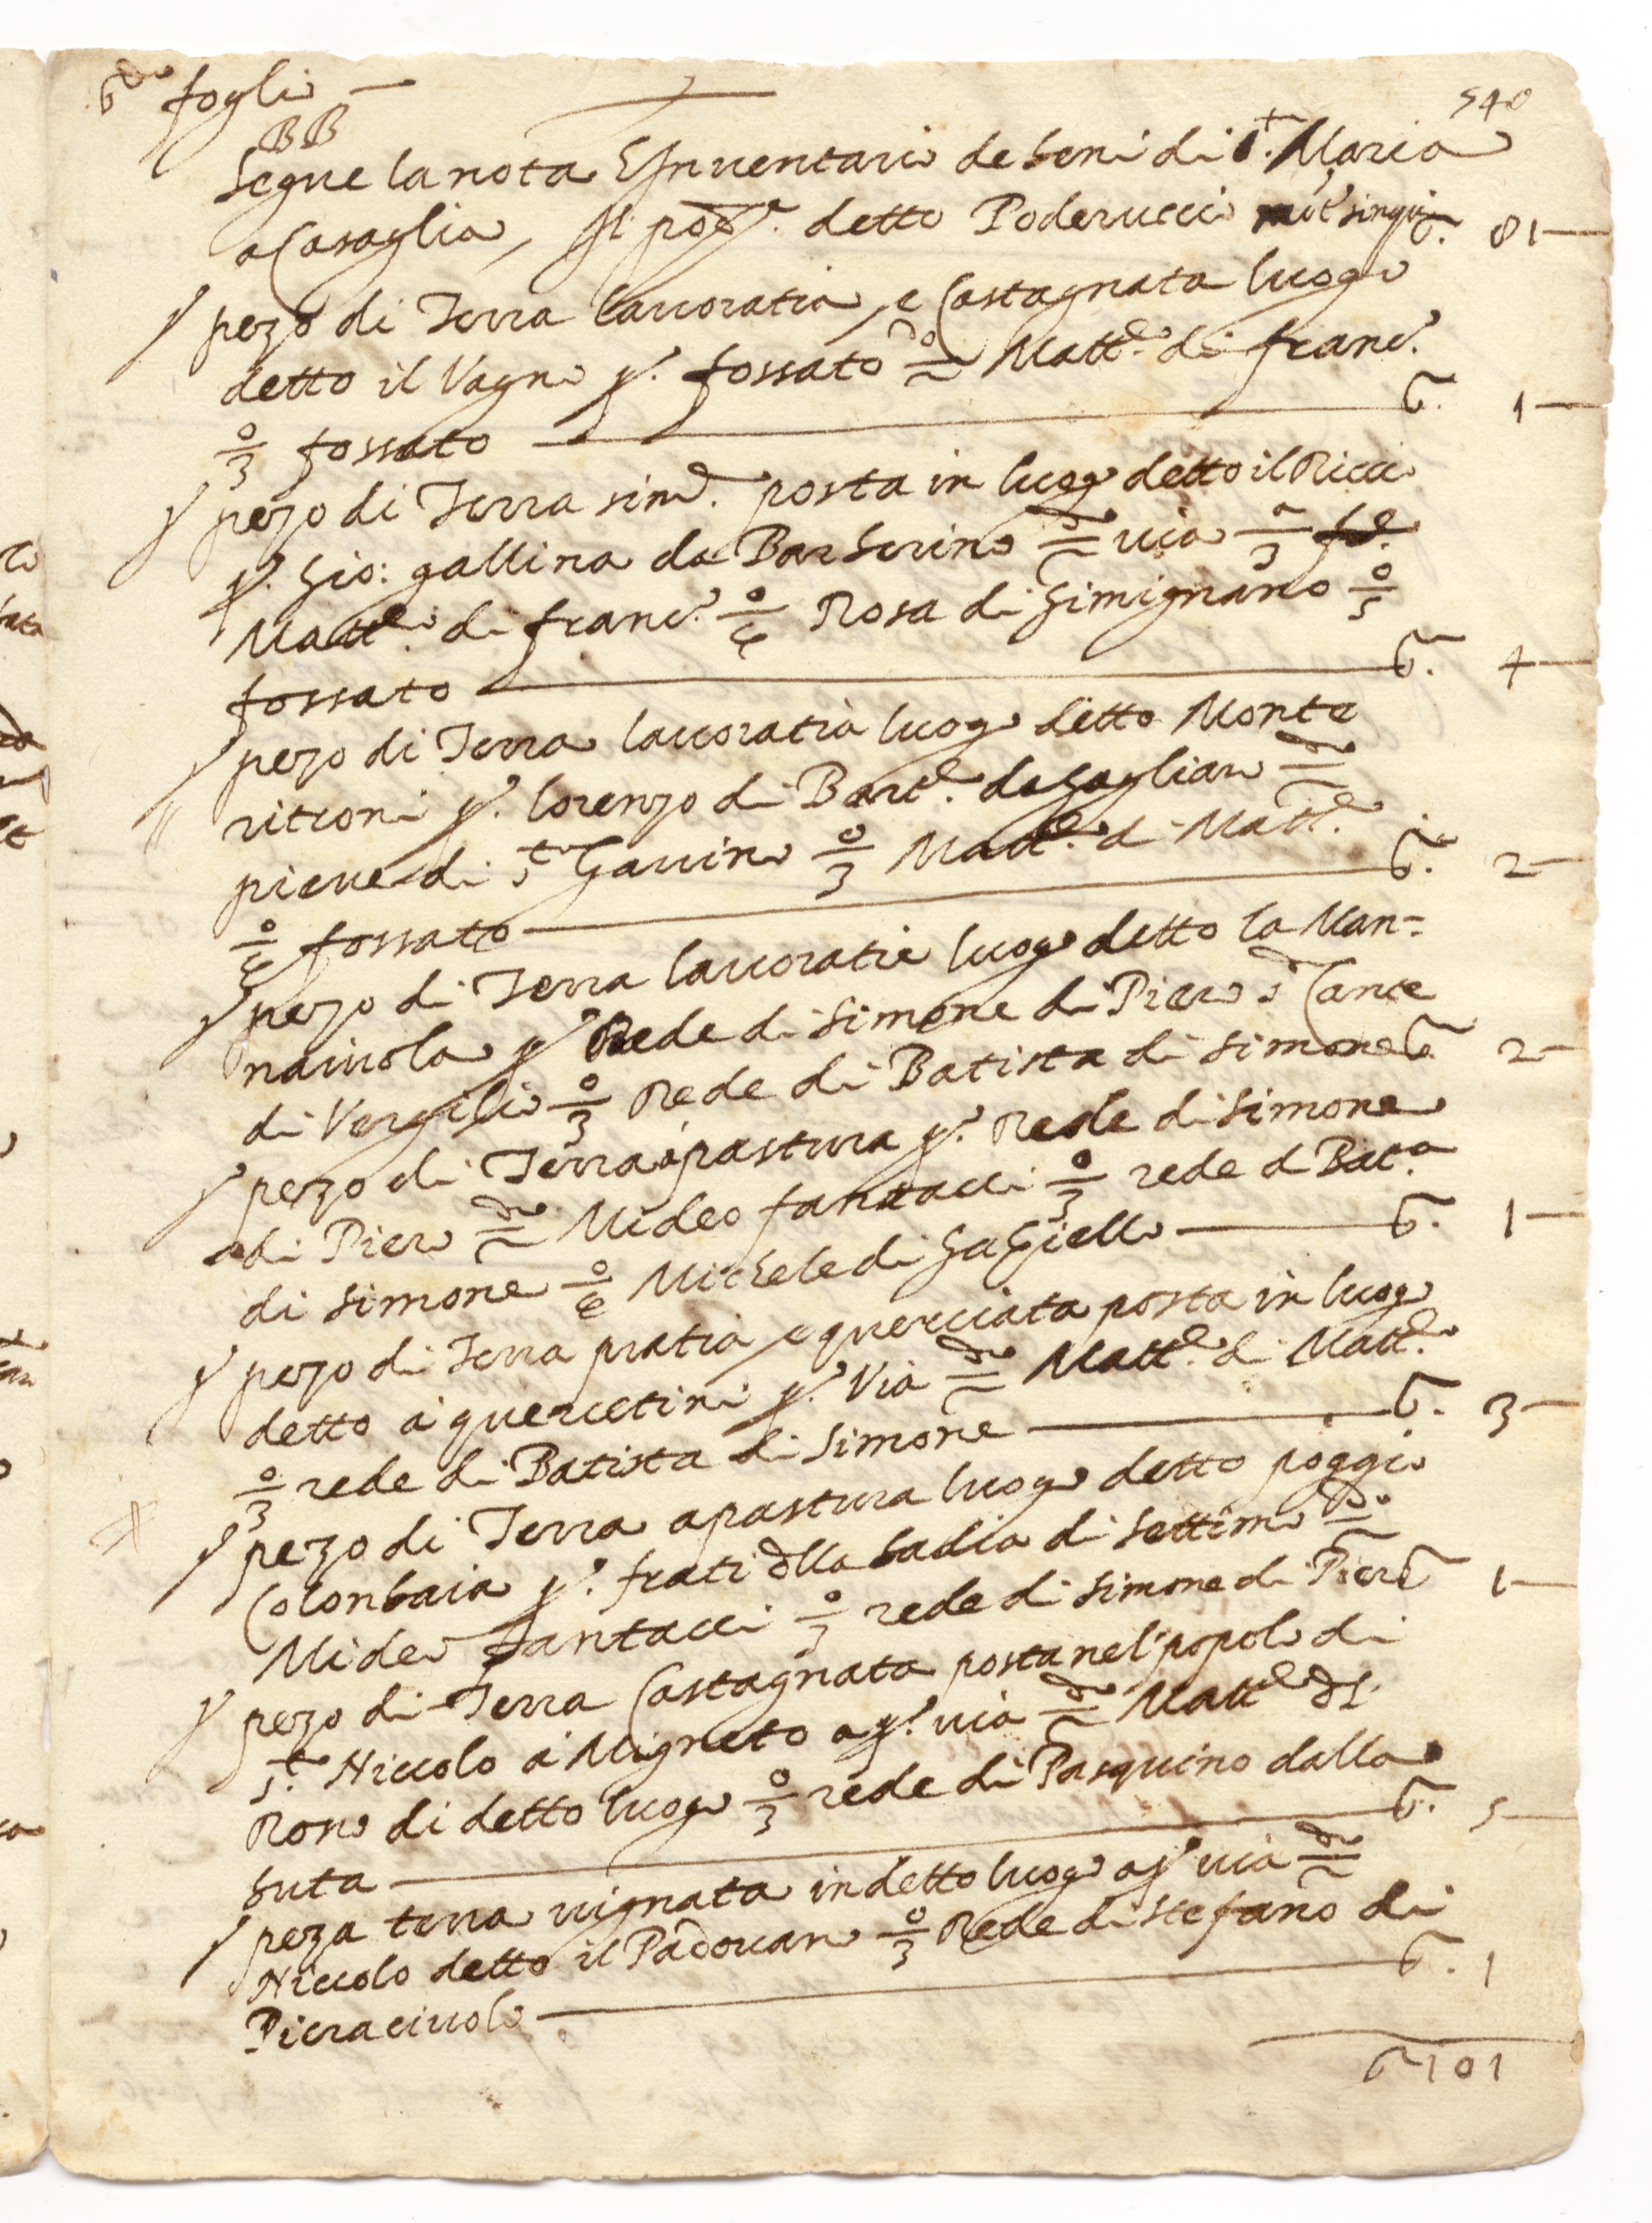 6to foglio
540
BB
Segue la nota E Inventario de beni di S.ta Maria
a Casaglia, Il pod.e detto Poderucci 81
1 pezo di Terra lavoratia e Castagnata luogo
detto il Vagno p.o fossato 2do Matt.o di franc.o
o/3 fossato 1
1 pezo di Terra sim.e posta in luogo detto il Ricci
p.o Gio: gallina da Barberino 2do via o/3
Matt.o di franc.o o/4 Rosa di Gimignano o/5
fossato 4
1 pezo di Terra lavoratia luogo detto Monte
ritroni p.o lorenzo di Bart.o 2do
pieve di S.to Gavino o/3 Matt.o di Matt.o
o/4 fossato 2
1 pezo di Terra lavoratia luogo detto la Man=
naiuola p.o Rede di Simone di Piero 2do Cante
di Vergilio o/3 Rede di Batista di Simone 2
1 pezo di Terra a pastura p.o rede di Simone
di Piero 2do Mideo fantacci o/3 rede di Bat.a
di Simone o/4 Michele di Gabriello 1
1 pezo di Terra pratia e querciata posta in luogo
detto a quercetini p.o Via 2do Matt.o di Matt.o
o/3 rede di Batista di Simone 3
1 pezo di Terra a pastura luogo detto poggio
Colonbaia p.o frati della badia di Settimo 2do
Mideo fantacci o/3 rede di Simone di Piero 1
1 pezo di Terra Castagnata posta nel popolo di
S.to Niccolo a Migneto a p.o via 2do Matt.o del
Rono di detto luogo o/3 rede di Pasquino dalla
buta 5
1 peza terra vignata in detto luogo a p.o via 2do
Niccolo detto il Padovano o/3 Rede di Stefano di
Pieraciuolo 1
101